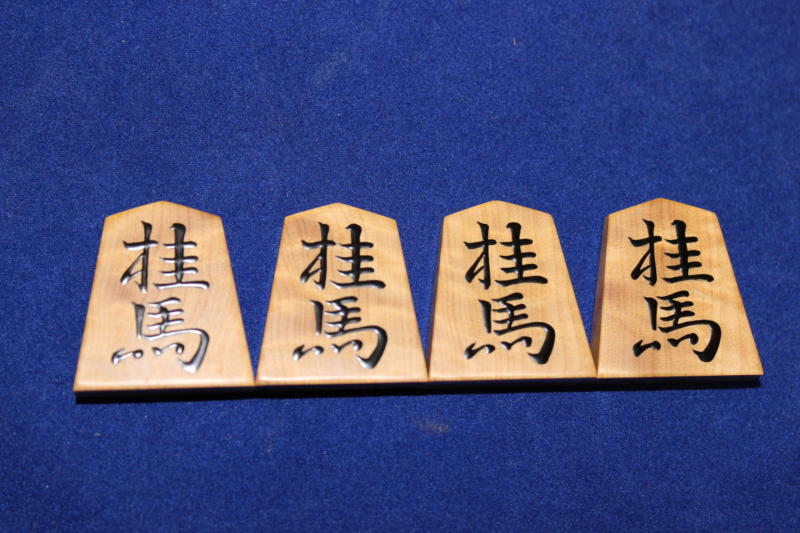 桂馬
桂馬
桂馬
桂馬